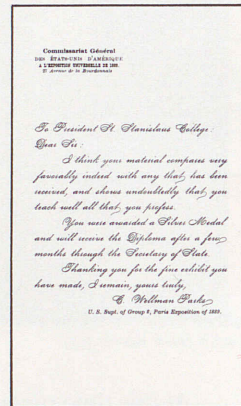 Commissariat Général
DES ÉTATS-UNIS D'AMÉRIQUE
A L'EXPOSITION UNIVERSELLE DE 1889.
Avenue de la Bourdonnais
To President St. Stanislaus College:
Dear Sir:
I think your material compares very
favorably indeed with any that has been
received, and shows undoubtedly that you
teach well all that you profess.
You were awarded a Silver Medal
and will receive the Diploma after a few
months through the Secretary of State.
Thanking you for the fine exhibit you
have made, I remain, yours truly,
C. Wellman Parks
U. S. Supt. of Group 2, Paris Exposition of 1889.